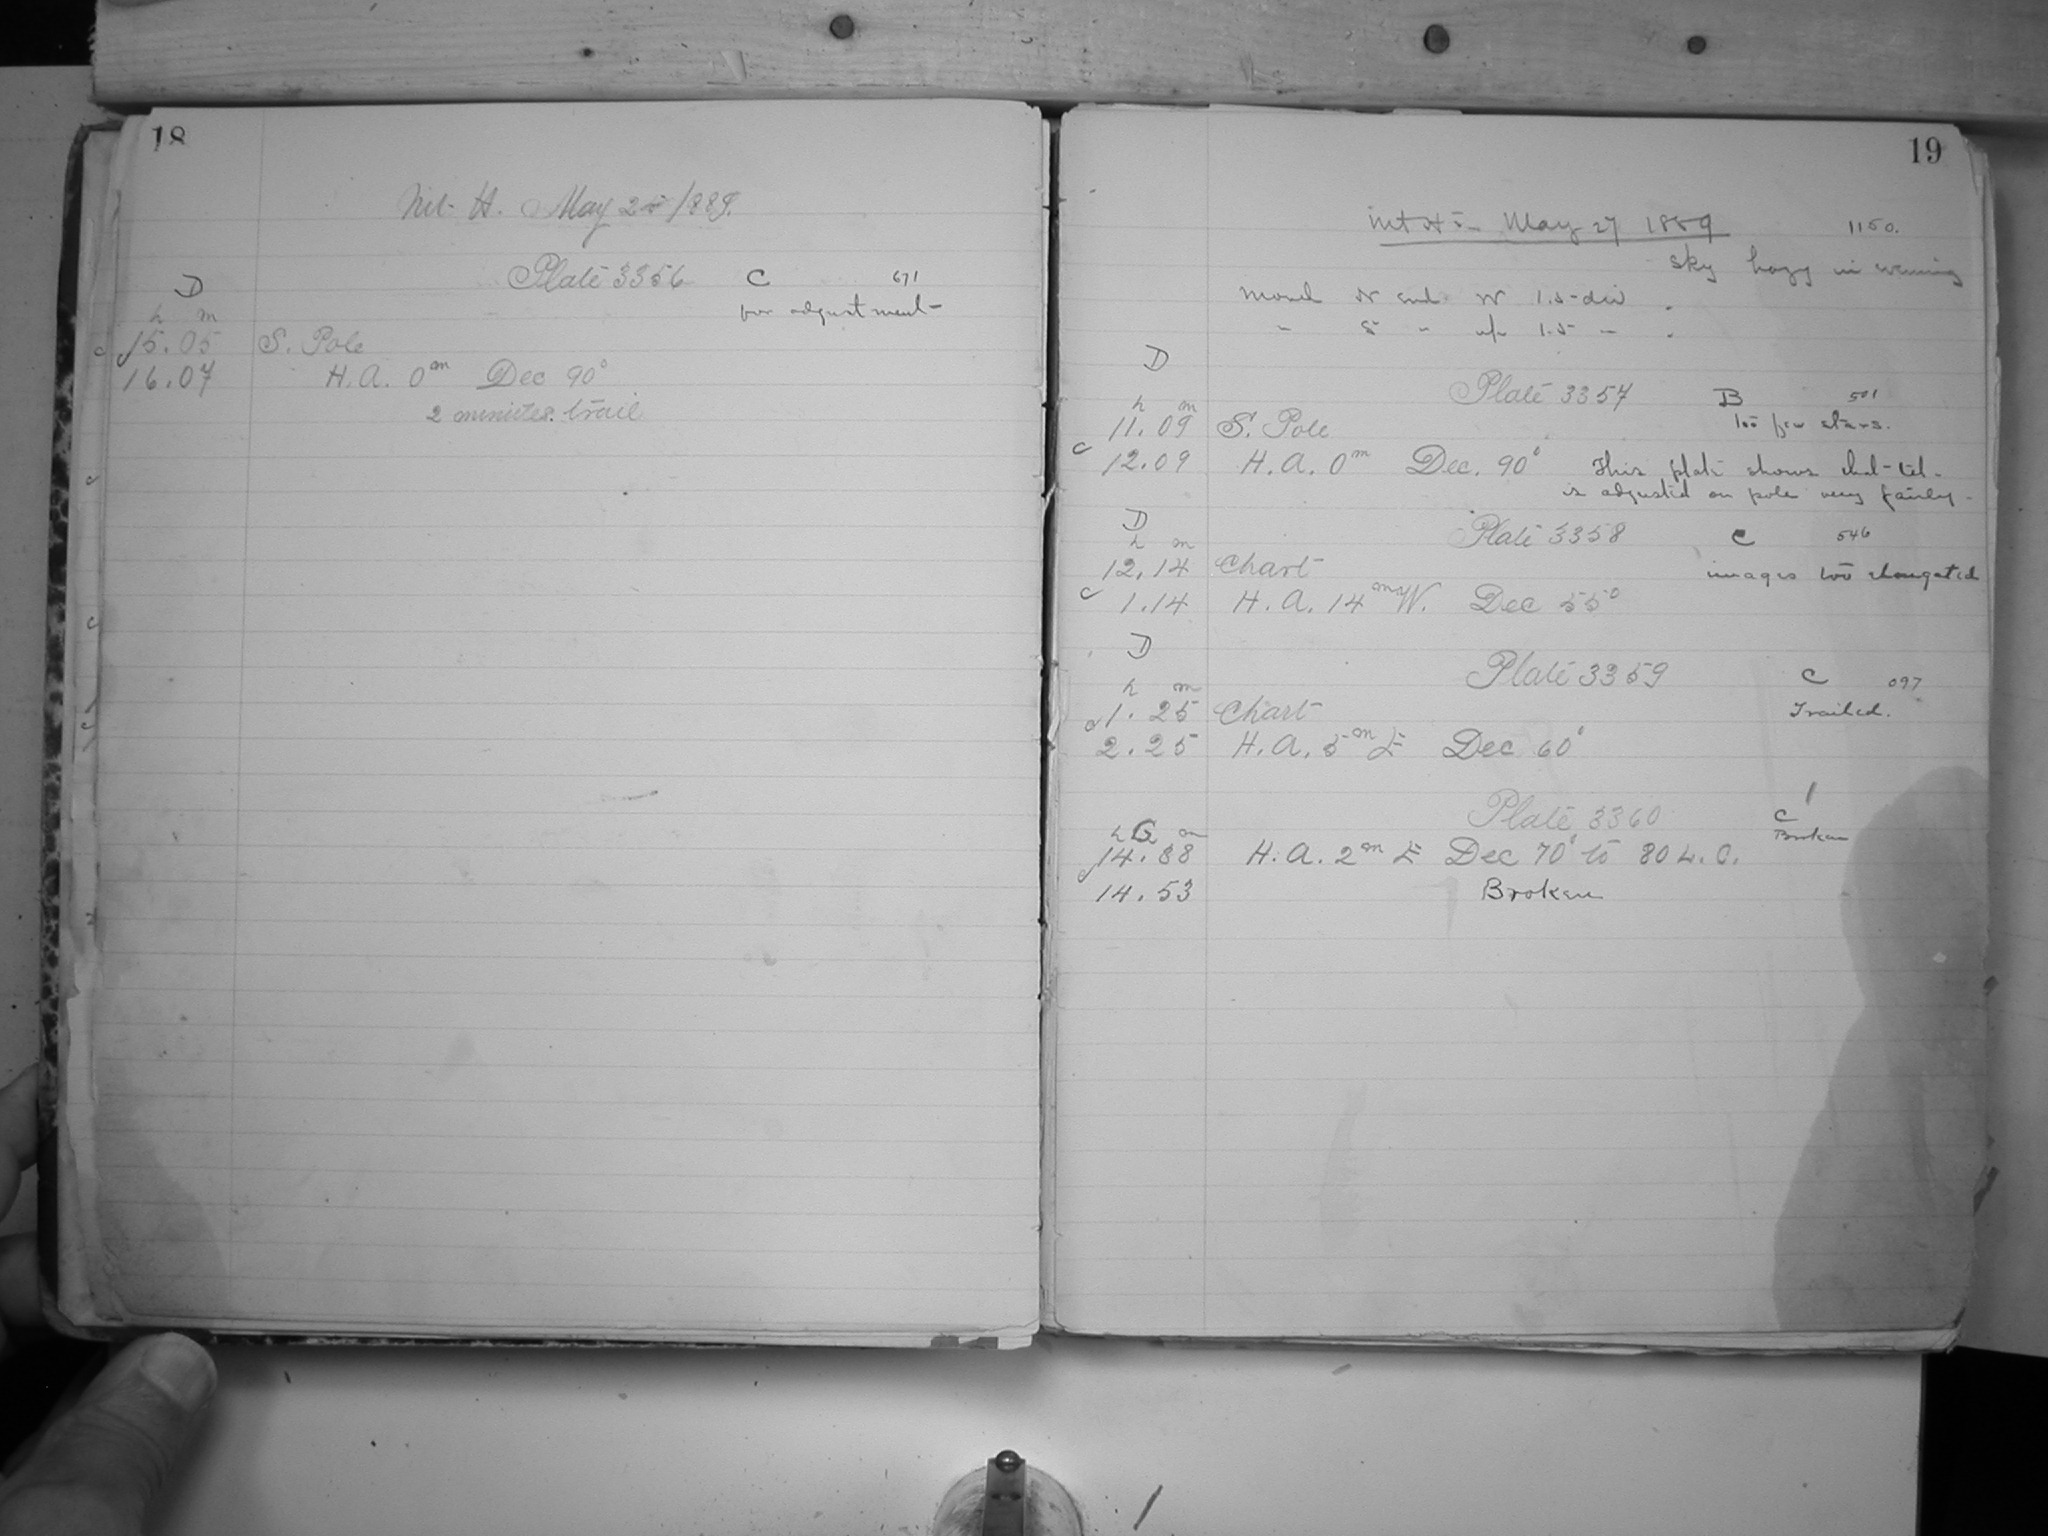 18
Mt. H. May 25 1889.
Plate 3356 C 671
D for adjustment
h m
15.05 S. Pole
16.07 H.A. 0m Dec 90°
2 minutes trail
19
Mt H. May 27 1889 1150.
Sky hazy in evening
Moved N end W 1.5 div.
" S " up 1.5 "
D
Plate 3357 B 501
h m too few stars.
11.09 S. Pole
c 12.09 H.A. 0m Dec. 90° This plate shows that tel.
is adjusted on pole very fairly.
D Plate 3358 C 546
h m
12.14 Chart images too elongated
c 1.14 H.A. 14m W. Dec 55°
D
Plate 3359 C 097
h m Trailed.
1.25 Chart
2.25 H.A. 5m E Dec 60°
Plate 3360 C 1
h G m Broken
14.38 H.A. 2m E Dec 70° to 80 L.C.
14.53 Broken